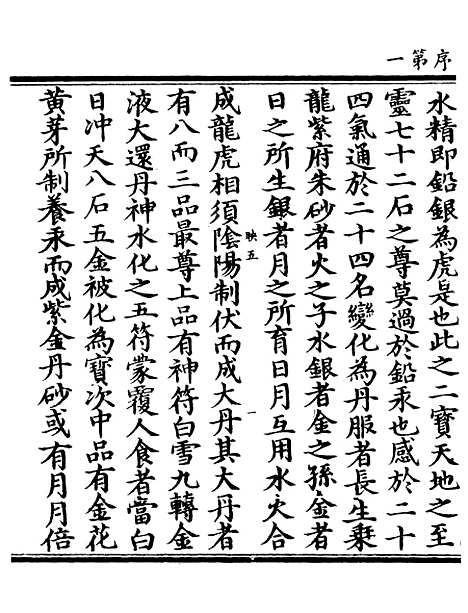 序第一
水精即鉛銀為虎是也此之二寶天地之至
靈七十二石之尊莫過於鉛汞也感於二十
四氣通於二十四名變化為丹服者長生乗
龍紫府朱砂者火之子水銀者金之孫金者
日之所生銀者月之所育日月互用水火合
映五 一
成龍虎相須陰陽制伏而成大丹其大丹者
有八而三品最尊上品有神符白雪九轉金
液大還丹神水化之五符蒙覆人食者當白
日冲天八石五金被化為寶次中品有金花
黄芽所制養汞而成紫金丹砂或有月月倍